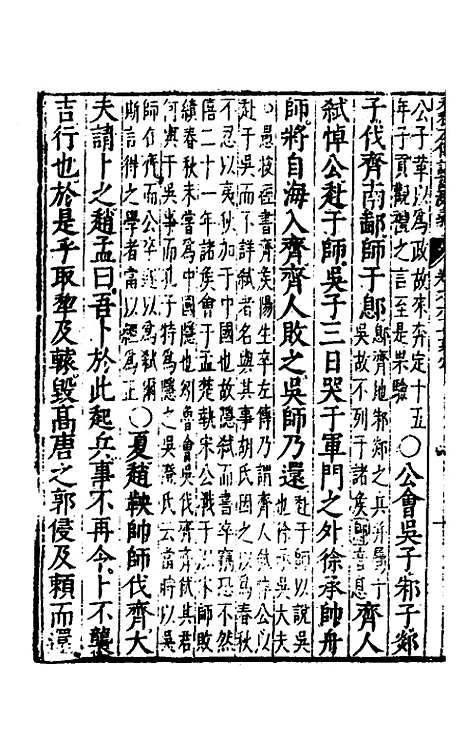 公子革以爲政故來奔定十五
年子貢觀禮之言至是果驗
○公會吳子邾子郯
子伐齊南鄙師于鄎
鄎齊地邾郯之兵并屬于
吳故不列于諸侯鄎音息
齊人
弑悼公赴于師吳子三日哭于軍門之外徐承帥舟
師將自海入齊齊人敗之吳師乃還
赴于師以說吳
也徐承吳大夫
○愚按經書齊侯陽生卒左傳乃謂齊人弑悼公以
赴于吳而不詳弑者名與其事胡氏因之以爲春秋
不忍以夷狄加于中國也故隱弑而書卒竊恐不然
僖二十一年諸侯會于孟楚執宋公戰于泓宋師敗
績春秋未嘗爲中國隱也魯會吳伐齊齊弑其君
何與于吳事而孔子特爲隱之吳澂氏云當時以吳
師在齊而公卒遂以爲弑爾
斯言得之學者當以經爲正
○夏趙鞅帥師伐齊大
夫請卜之趙孟曰吾卜於此起兵事不再令卜不襲
吉行也於是乎取犂及轅毀高唐之郭侵及賴而還